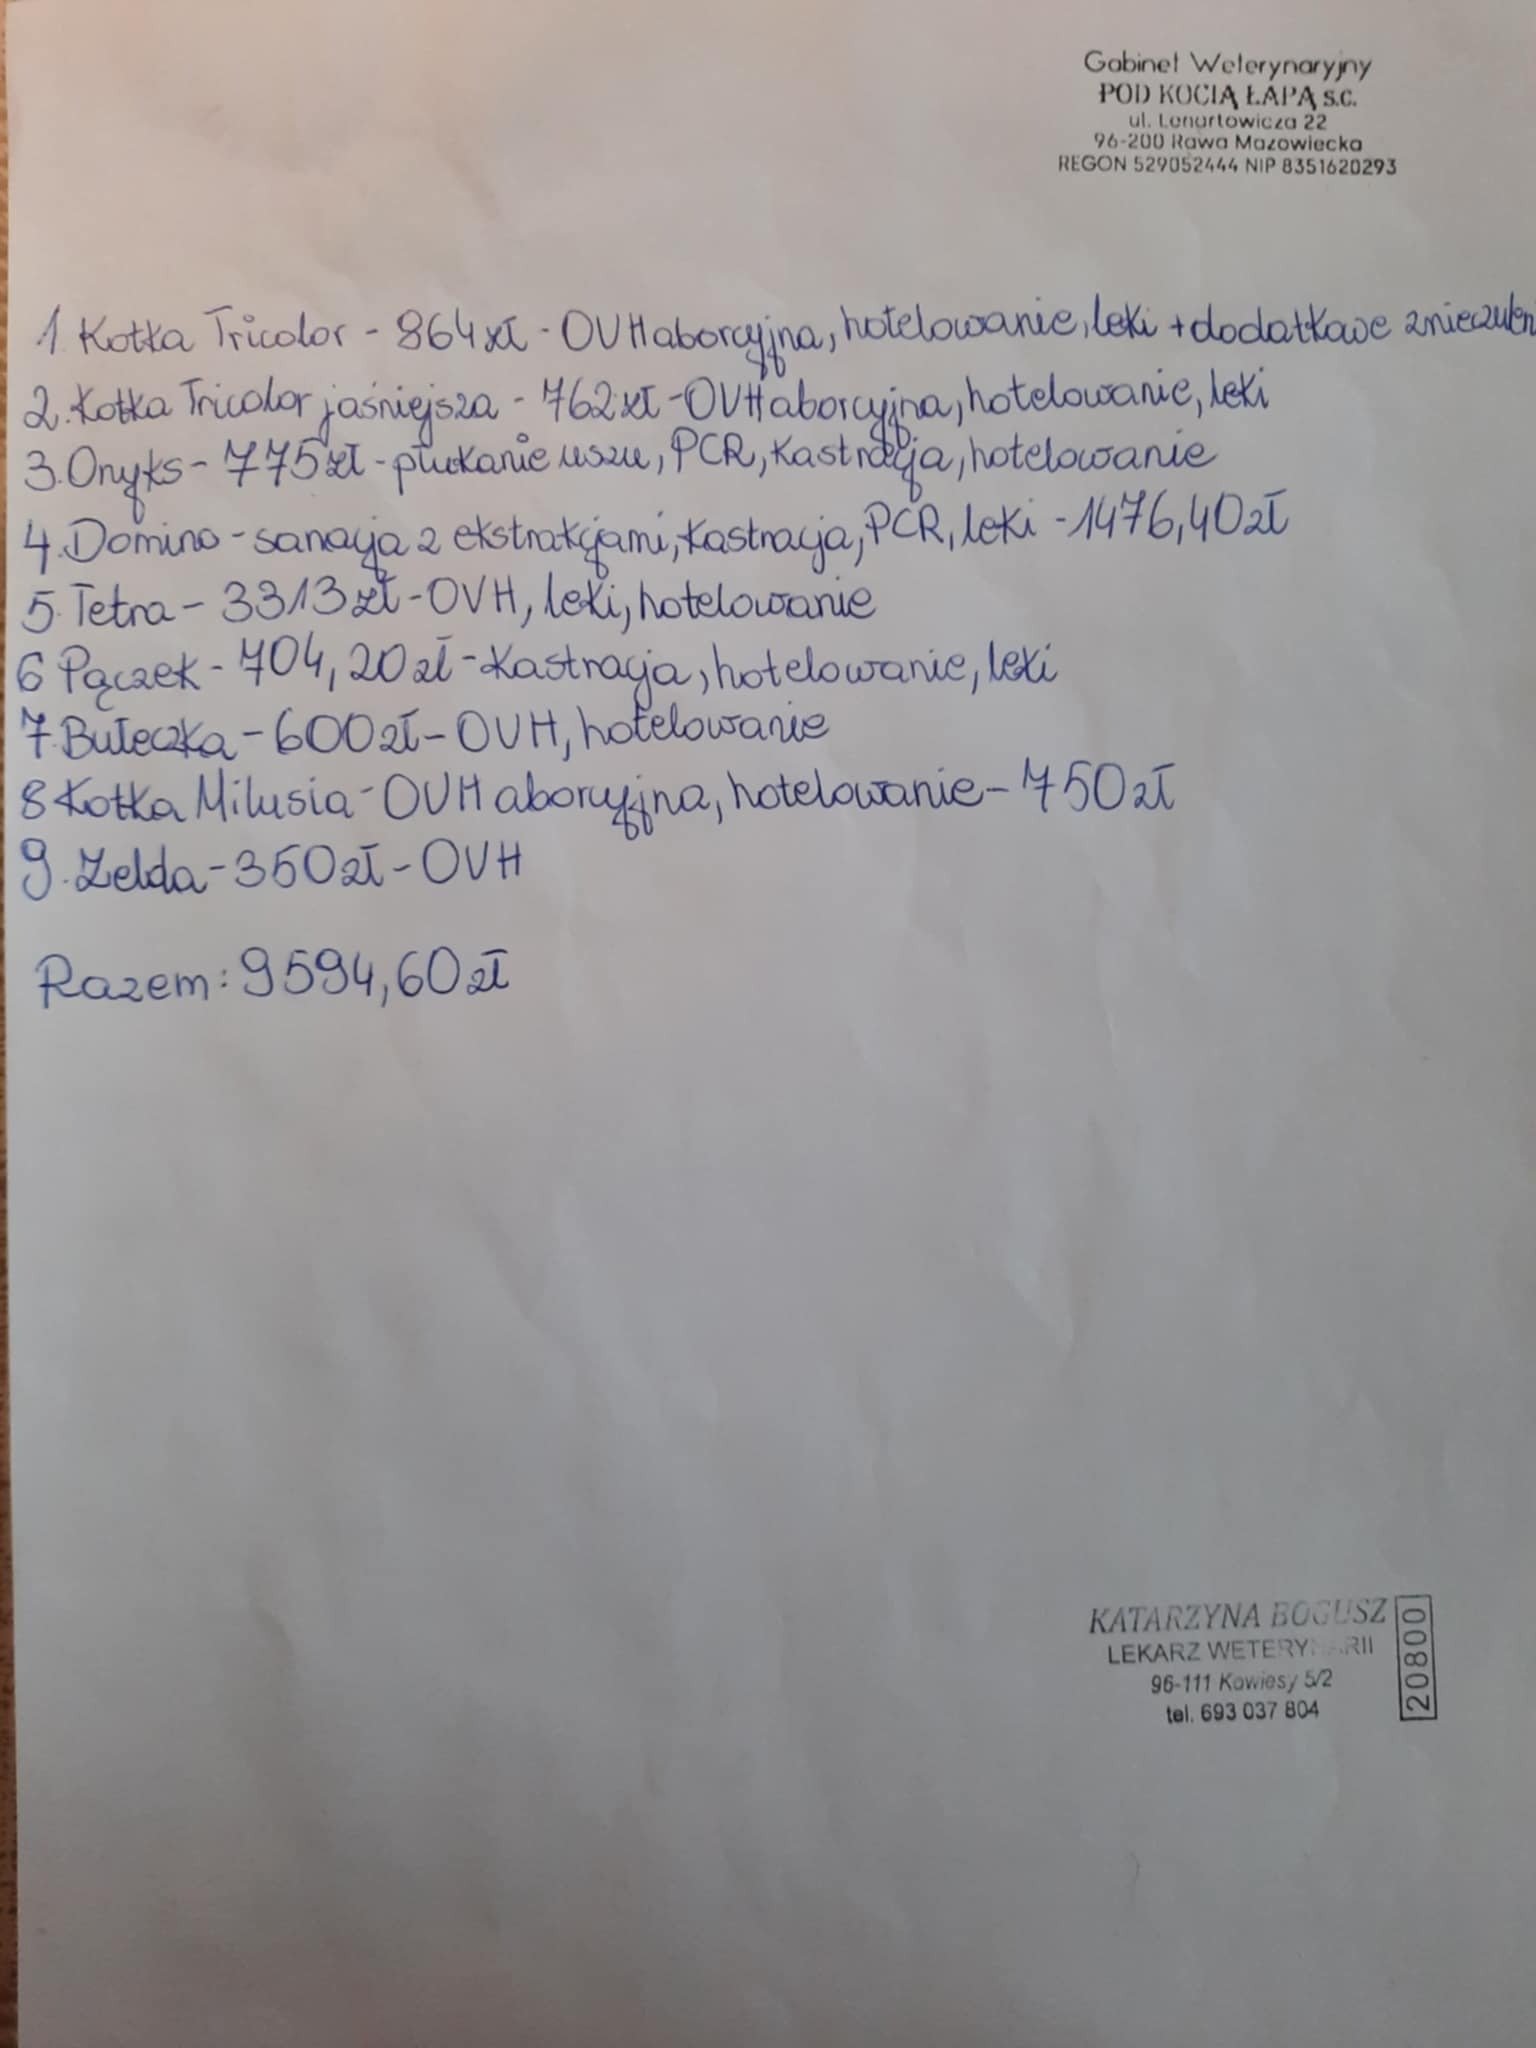 Gabinet Weterynaryjny
POD KOCIĄ ŁAPĄ s.c.
ul. Lenartowicza 22
96-200 Rawa Mazowiecka
REGON 529052444 NIP 8351620293
1. Kotka Tricolor - 864 zł - OVH aborcyjna, hotelowanie, leki + dodatkowe znieczulen
2. Kotka Tricolor jaśniejsza - 762 zł - OVH aborcyjna, hotelowanie, leki
3. Onyks - 775 zł - płukanie uszu, PCR, Kastracja, hotelowanie
4. Domino - sanacja z ekstrakcjami, kastracja, PCR, leki - 1476,40 zł
5. Tetra - 3313 zł - OVH, leki, hotelowanie
6 Pączek - 704,20 zł - Kastracja, hotelowanie, leki
7. Bułeczka - 600 zł - OVH, hotelowanie
8 Kotka Milusia - OVH aborcyjna, hotelowanie - 750 zł
9. Zelda - 350 zł - OVH
Razem: 9594,60 zł
KATARZYNA BOGUSZ
LEKARZ WETERYNARII
96-111 Kowiesy 5/2
tel. 693 037 804
20800